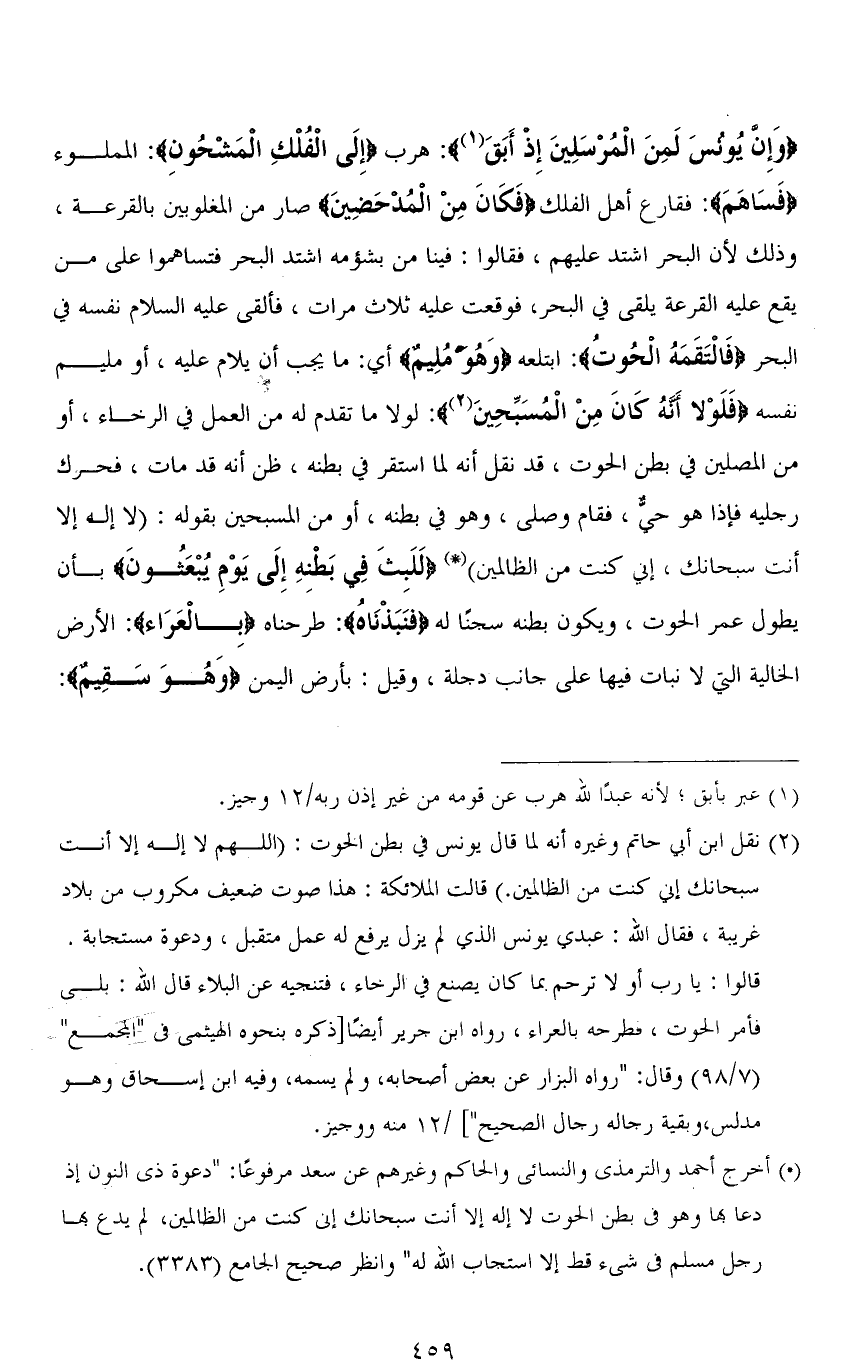 ﴿وَإِنَّ يُونُسَ لَمِنَ الْمُرْسَلِينَ إِذْ أَبَقَ(١)﴾: هرب ﴿إِلَى الْفُلْكِ الْمَشْحُونِ﴾: المملوء
﴿فَسَاهَمَ﴾: فقارع أهل الفلك ﴿فَكَانَ مِنْ الْمُدْحَضِينَ﴾ صار من المغلوبين بالقرعة ،
وذلك لأن البحر اشتد عليهم ، فقالوا : فينا من بشؤمه اشتد البحر فتساهموا على من
يقع عليه القرعة يلقى في البحر، فوقعت عليه ثلاث مرات ، فألقى عليه السلام نفسه في
البحر ﴿فَالْتَقَمَهُ الْحُوتُ﴾: ابتلعه ﴿وَهُوَ مُلِيمٌ﴾ أي: ما يجب أن يلام عليه ، أو مليم
نفسه ﴿فَلَوْلا أَنَّهُ كَانَ مِنْ الْمُسَبِّحِينَ(٢)﴾: لولا ما تقدم له من العمل في الرخاء ، أو
من المصلين في بطن الحوت ، قد نقل أنه لما استقر في بطنه ، ظن أنه قد مات ، فحرك
رجليه فإذا هو حيٌّ ، فقام وصلى ، وهو في بطنه ، أو من المسبحين بقوله : (لا إله إلا
أنت سبحانك ، إني كنت من الظالمين)(*) ﴿لَلَبِثَ فِي بَطْنِهِ إِلَى يَوْمِ يُبْعَثُونَ﴾ بأن
يطول عمر الحوت ، ويكون بطنه سجنًا له ﴿فَنَبَذْنَاهُ﴾: طرحناه ﴿بِالْعَرَاء﴾: الأرض
الخالية التي لا نبات فيها على جانب دجلة ، وقيل : بأرض اليمن ﴿وَهُوَ سَقِيمٌ﴾:
(١) عبر بأبق ؛ لأنه عبدًا لله هرب عن قومه من غير إذن ربه/١٢ وجيز.
(٢) نقل ابن أبي حاتم وغيره أنه لما قال يونس في بطن الحوت : (اللهم لا إله إلا أنت
سبحانك إني كنت من الظالمين.) قالت الملائكة : هذا صوت ضعيف مكروب من بلاد
غريبة ، فقال الله : عبدي يونس الذي لم يزل يرفع له عمل متقبل ، ودعوة مستجابة .
قالوا : يا رب أو لا ترحم بما كان يصنع في الرخاء ، فتنجيه عن البلاء قال الله : بلى
فأمر الحوت ، فطرحه بالعراء ، رواه ابن جرير أيضًا[ذكره بنحوه الهيثمى فى "المجمع"
(٩٨/٧) وقال: "رواه البزار عن بعض أصحابه، ولم يسمه، وفيه ابن إسحاق وهو
مدلس،وبقية رجاله رجال الصحيح"] /١٢ منه ووجيز.
(*) أخرج أحمد والترمذى والنسائى والحاكم وغيرهم عن سعد مرفوعًا: "دعوة ذى النون إذ
دعا بها وهو فى بطن الحوت لا إله إلا أنت سبحانك إنى كنت من الظالمين، لم يدع بها
رجل مسلم فى شىء قط إلا استجاب الله له" وانظر صحيح الجامع (٣٣٨٣).
٤٥٩